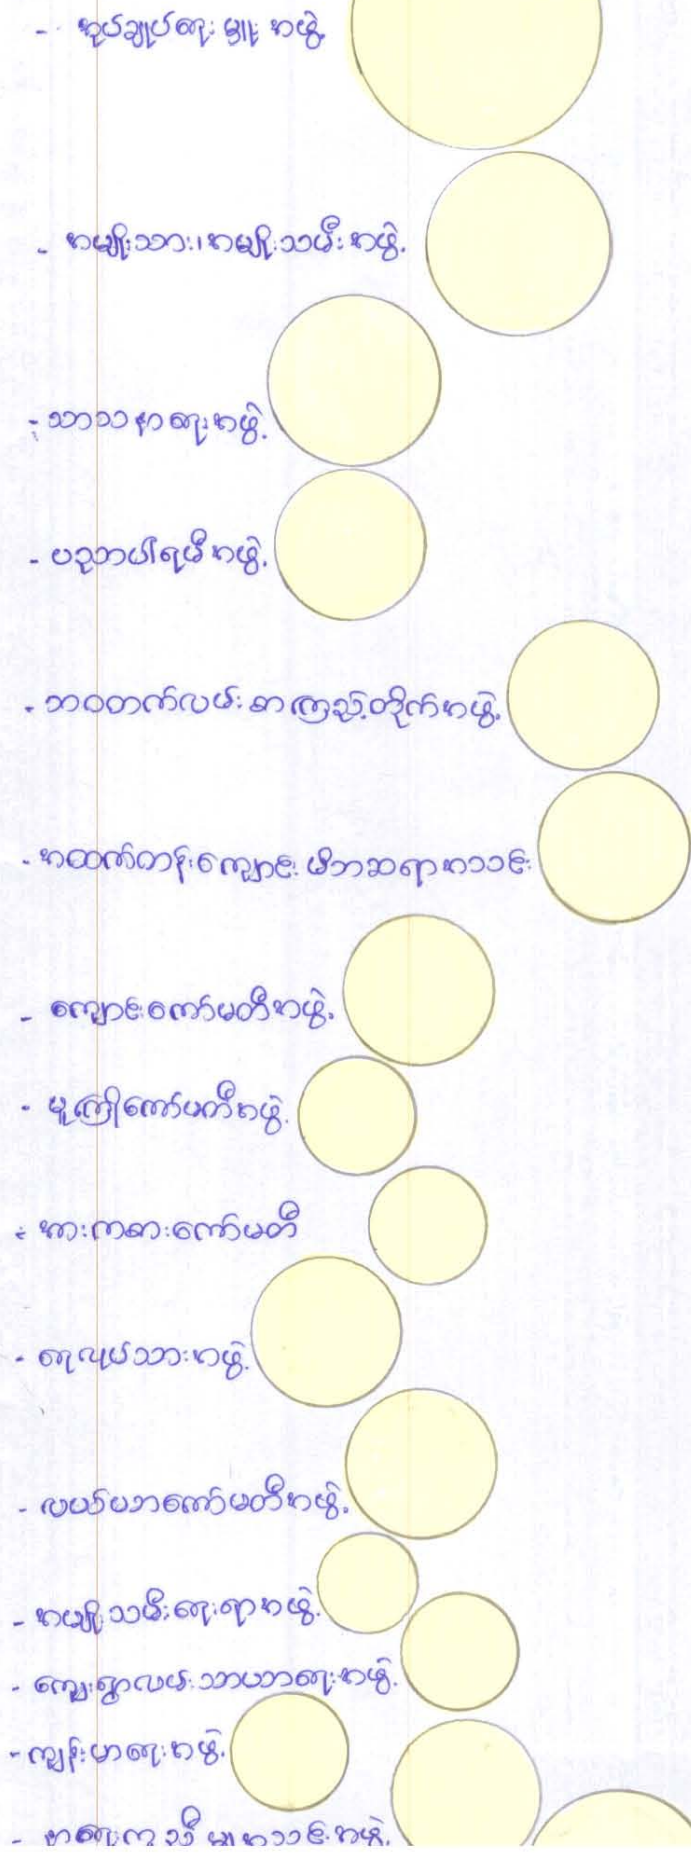 - အုပ်ချုပ်ရေးမှူးအဖွဲ့
- အမျိုးသား၊အမျိုးသမီးအဖွဲ့.
- သာသနာရေးအဖွဲ့.
- ပဉ္စဘပါရမီအဖွဲ့.
- ဘဝတက်လမ်းစာကြည့်တိုက်အဖွဲ့.
- အထက်တန်းကျောင်းမိဘဆရာအသင်း
- ကျောင်းကော်မတီအဖွဲ့.
- မူကြိုကော်မတီအဖွဲ့.
- အားကစားကော်မတီ
- ရေလုပ်သားအဖွဲ့.
- လယ်ယာကော်မတီအဖွဲ့.
- အမျိုးသမီးရေးရာအဖွဲ့.
- ကျေးရွာလမ်းသာယာရေးအဖွဲ့.
- ကျန်းမာရေးအဖွဲ့.
- အရေးကူညီမှုအသင်းအဖွဲ့.